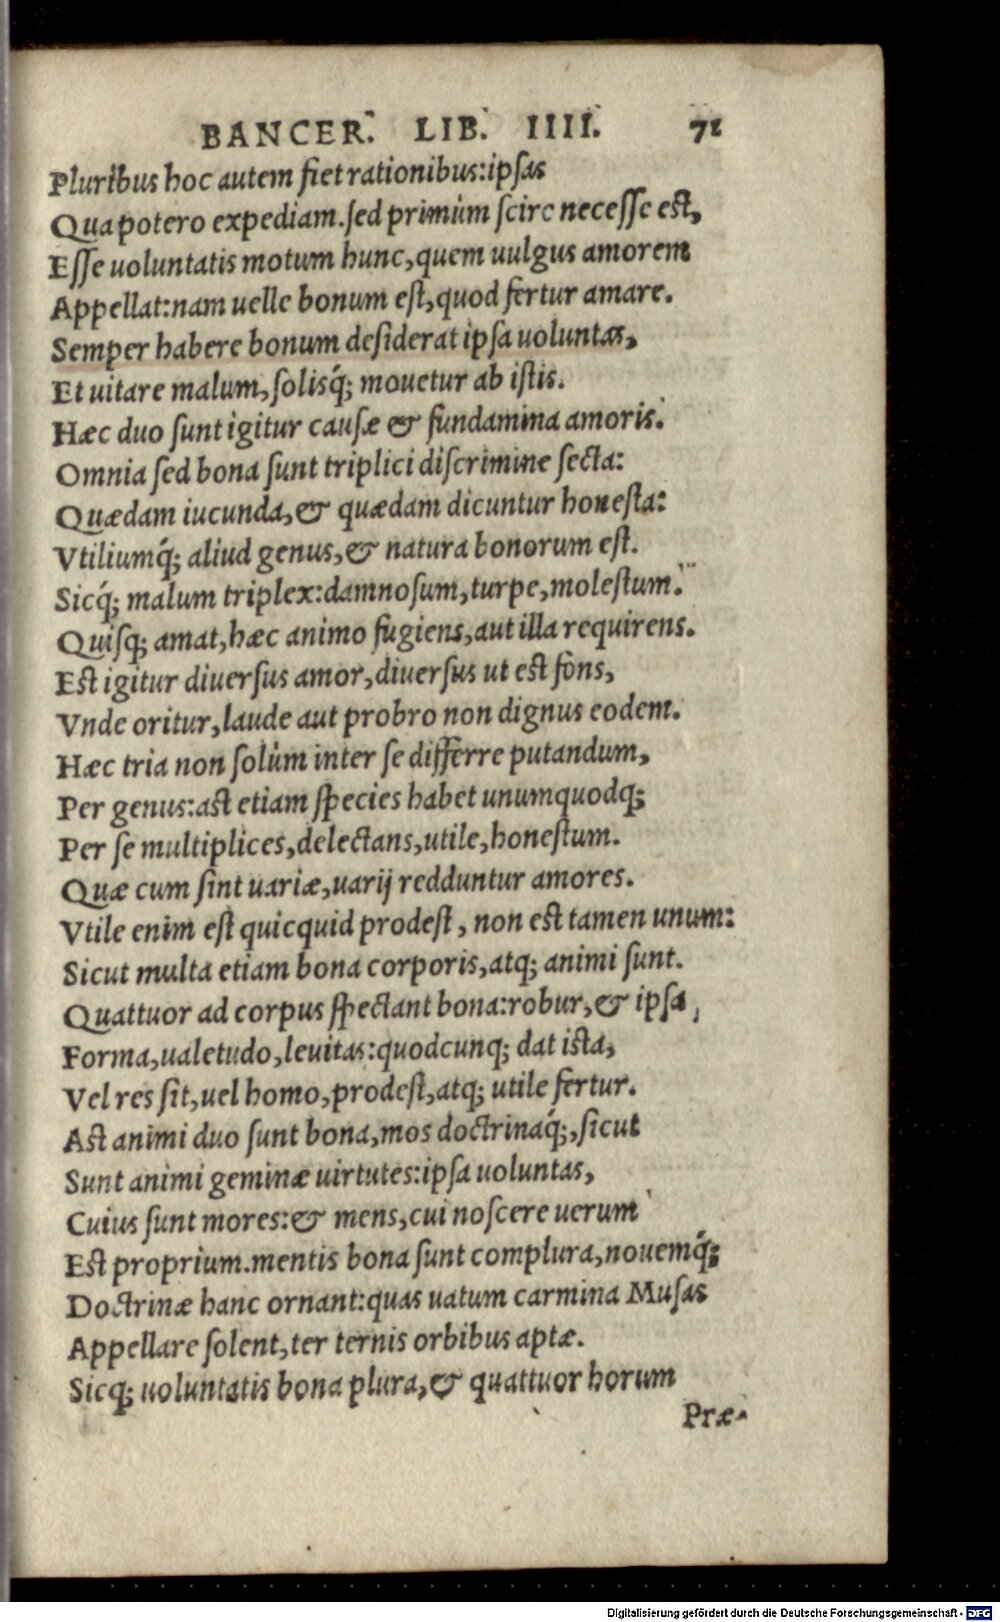 BANCER. LIB. IIII. 71
Pluribus hoc autem fiet rationibus:ipſas
Qua potero expediam.ſed primùm ſcire neceſſe eſt,
Eſſe uoluntatis motum hunc,quem uulgus amorem
Appellat:nam uelle bonum eſt,quod fertur amare.
Semper habere bonum deſiderat ipſa uoluntas,
Et uitare malum,ſolisq́; mouetur ab iſtis.
Hæc duo ſunt igitur cauſæ & fundamina amoris.
Omnia ſed bona ſunt triplici diſcrimine ſecta:
Quædam iucunda,& quædam dicuntur honeſta:
Vtiliumq́; aliud genus,& natura bonorum eſt.
Sicq́; malum triplex:damnoſum,turpe,moleſtum.
Quiſq; amat,hæc animo fugiens,aut illa requirens.
Eſt igitur diuerſus amor,diuerſus ut eſt fons,
Vnde oritur,laude aut probro non dignus eodem.
Hæc tria non ſolùm inter ſe differre putandum,
Per genus:aſt etiam ſpecies habet unumquodq;
Per ſe multiplices,delectans,utile,honeſtum.
Quæ cum ſint uariæ,uarij redduntur amores.
Vtile enim eſt quicquid prodeſt, non eſt tamen unum:
Sicut multa etiam bona corporis,atq; animi ſunt.
Quattuor ad corpus ſpectant bona:robur,& ipſa,
Forma,ualetudo,leuitas:quodcunq; dat iſta,
Vel res ſit,uel homo,prodeſt,atq; utile fertur.
Aſt animi duo ſunt bona,mos doctrinaq́;,ſicut
Sunt animi geminæ uirtutes:ipſa uoluntas,
Cuius ſunt mores:& mens,cui noſcere uerum
Eſt proprium.mentis bona ſunt complura,nouemq́;
Doctrinæ hanc ornant:quas uatum carmina Muſas
Appellare ſolent,ter ternis orbibus aptæ.
Sicq; uoluntatis bona plura,& quattuor horum
Præ-
Digitalisierung gefördert durch die Deutsche Forschungsgemeinschaft - DFG